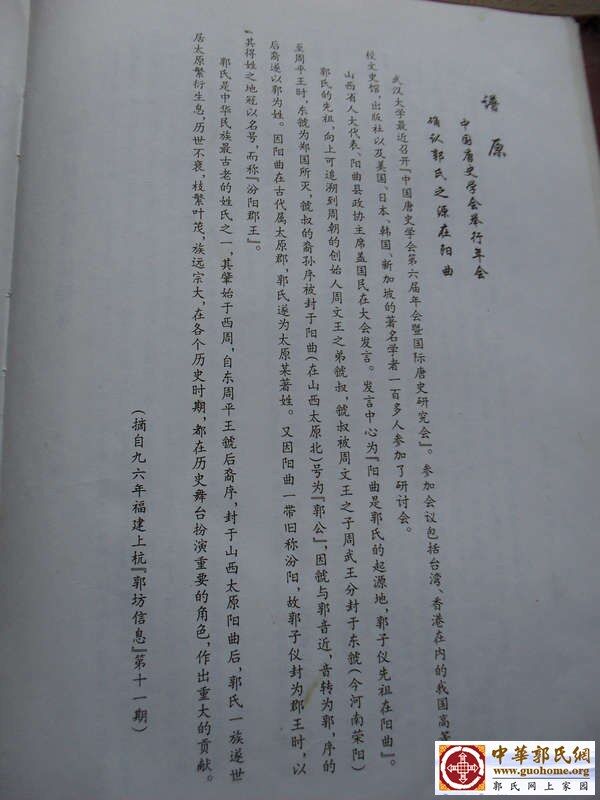 谱原
中国唐史学会举行年会
确认郭氏之源在阳曲
武汉大学最近召开『中国唐史学会第六届年会暨国际唐史研究会』。参加会议包括台湾、香港在内的我国高等
校文史馆，出版社以及美国、日本、韩国、新加坡的著名学者一百多人参加了研讨会。
山西省人大代表、阳曲县政协主席盖国民在大会发言。发言中心为『阳曲是郭氏的起源地，郭子仪先祖在阳曲』。
郭氏的先祖，向上可追溯到周朝的创始人周文王之弟虢叔，虢叔被周文王之子周武王分封于东虢（今河南荥阳）
至周平王时，东虢为郑国所灭，虢叔的裔孙序被封于阳曲（在山西太原北）号为『郭公』，因虢与郭音近，音转为郭，序的
后裔遂以郭为姓。因阳曲在古代属太原郡，郭氏遂为太原某著姓。又因阳曲一带旧称汾阳，故郭子仪封为郡王时，以
其得姓之地冠以名号，而称『汾阳郡王』。
郭氏是中华民族最古老的姓氏之一，其肇始于西周，自东周平王虢后裔序，封于山西太原阳曲后，郭氏一族遂世
居太原繁衍生息，历世不衰，枝繁叶茂，族远宗大，在各个历史时期，都在历史舞台扮演重要的角色，作出重大的贡献。
（摘自九六年福建上杭『郭坊信息』第十一期）
中華郭氏網
www.guohome.org
郭氏网上家园